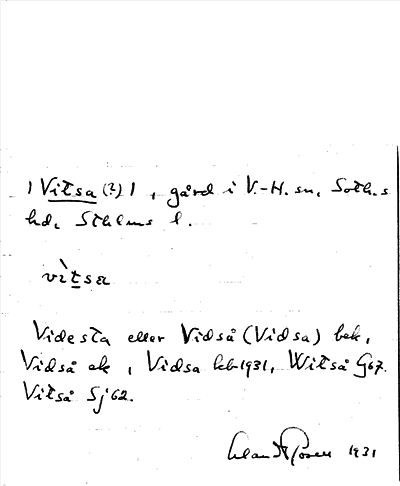 /Vitsa (?)/, gård i V.-H. sn, Soth.s
hd, Sthlms l.
vìtsa
Videsta eller Vidså (Vidsa) bek,
Vidså ek, Vidsa kb 1931, Witså G67.
Vitså Sj62.
1931